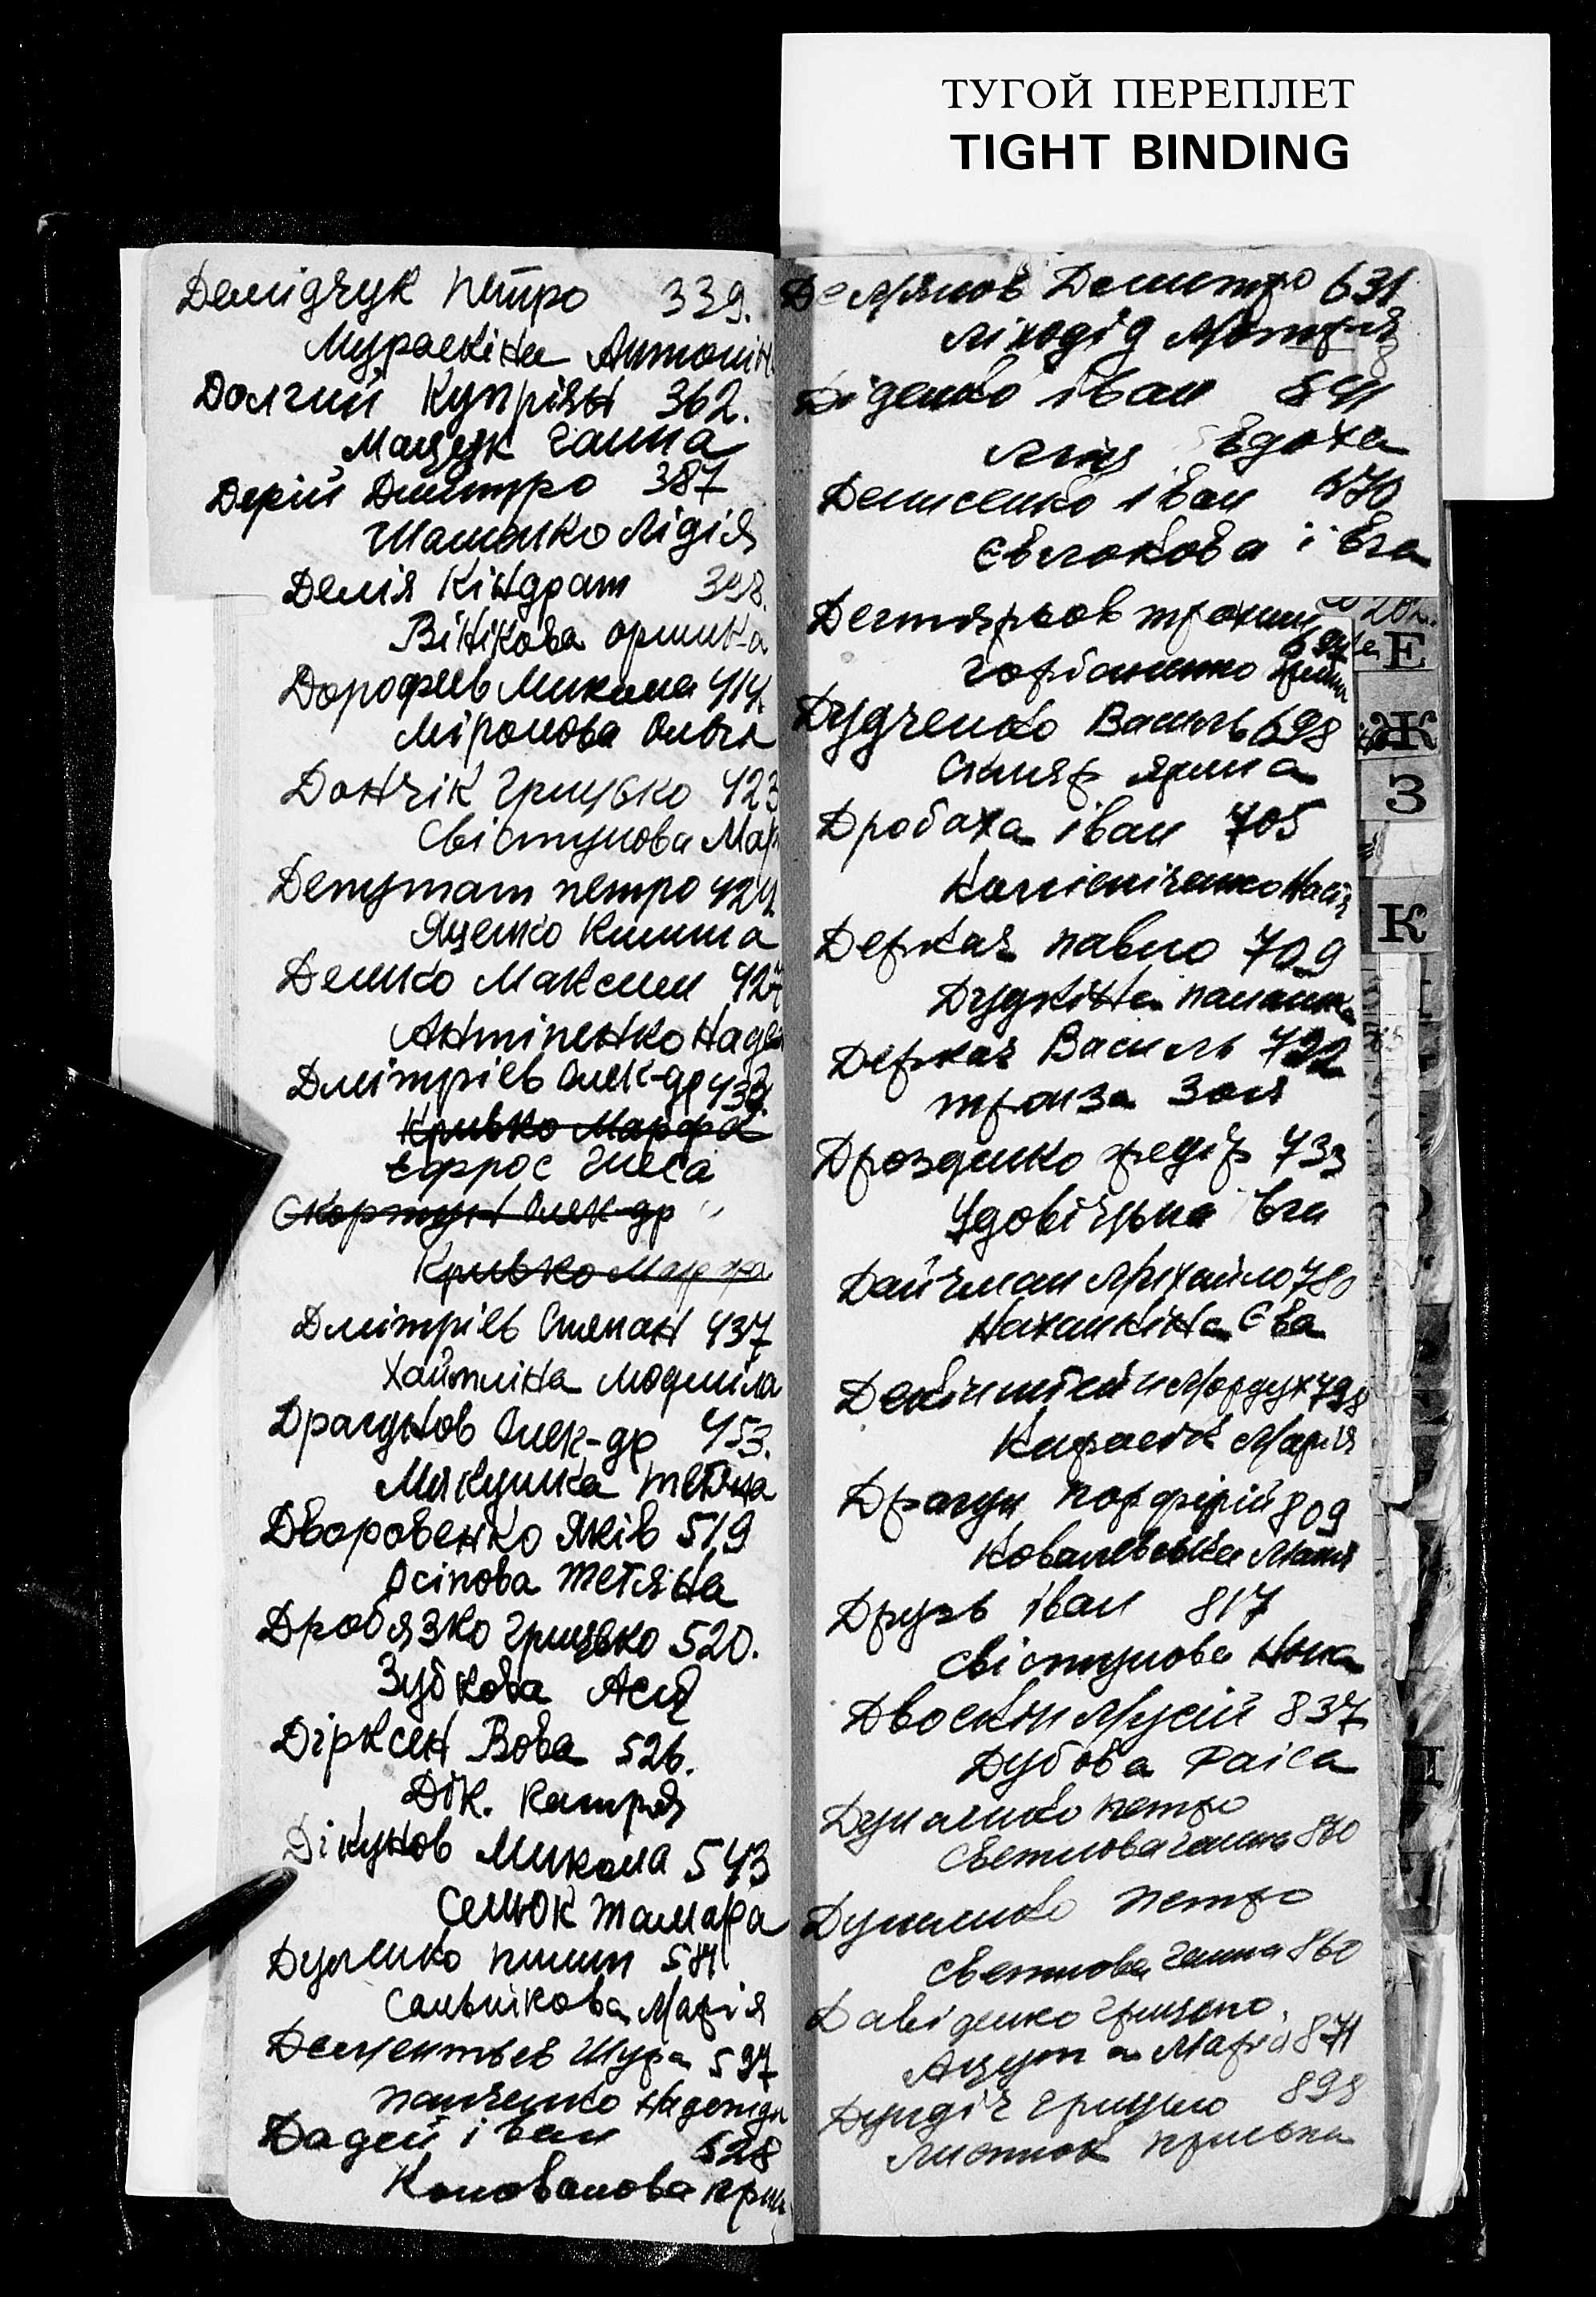 ТУГОЙ ПЕРЕПЛЕТ
TIGHT BINDING
Демідчук Петро 339.
Мураскіна Антонін
Долгий Купріян 362.
Мащук Ганна
Дерій Дмитро 387
Шаманко Лідія
Демія Кіндрат 398.
Вінікова Оришка
Дорофеев Микола 414.
Міронова Ольга
Дончік Грицько 423
Свістунова Мар
Депутат Петро 424
Яценко Килина
Демко Максим 427
Антіпенко Надя
Дмітрієв Олек-др 433.
Кривко Марфа
Єфрос Инеса
Скортун Олек-др "
Кривко Марфа
Дмітрієв Степан 437
Хайтліна Людміла
Драгунов Олек-др 453.
Мякушка Тетяна
Дворовенко Яків 519
Осіпова Тетяна
Дробязко Грицько 520.
Зубкова Ася
Дірксен Вова 526.
Дік. Катря
Дікунов Микола 543
Семюк Тамара
Дученко Пилип 581
Сальнікова Марія
Дементьєв Шура 597
Панченко Надежда
Дадей Іван 628
Коновалова Ири
Демянов Дмитро 631
Ліходід Мотря
Діденко Іван 641
Ляш Вдоха
Денисенко Іван 670
Євлокова ї Вга
Дегтярьов Трохим
694
Горбаненко
Дудченко Василь 698
Скляр Ярина
Дробаха Іван 705
Колісніченко Настя
Держач Павло 709
Дудкіна Палашка
Держач Василь 722
Тронза Зоя
Дрозденко Федір 733
Удовіцька Вга
Дайчман Михайло 780
Нахамкіна Єва
Мордух 798
Карасік Марія
Драгун Порфірій 809
Ковалевська Маня
Друзь Іван 817
Свістунова Нона
Двоскін Мусій 837
Дубова Раіса
Дуналенко Петро
Светлова Галина 860
Дуналенко Петро
Светлова Ганна 860
Давіденко Грицько.
Марія 871
Дундіч Грицько 898
Листюк Приська
Е
Ж
З
К